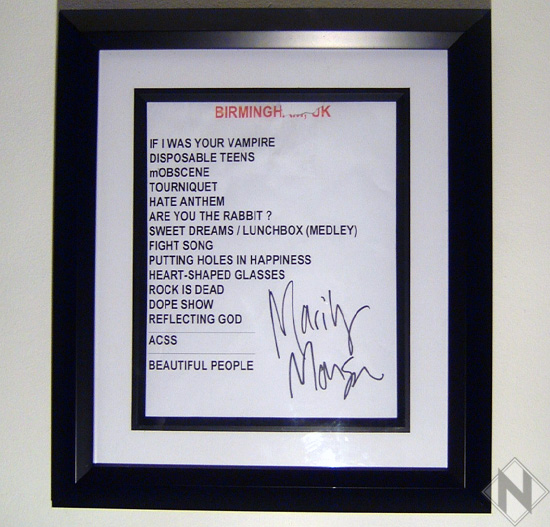 BIRMINGHAM, UK
IF I WAS YOUR VAMPIRE
DISPOSABLE TEENS
mOBSCENE
TOURNIQUET
HATE ANTHEM
ARE YOU THE RABBIT ?
SWEET DREAMS / LUNCHBOX (MEDLEY)
FIGHT SONG
PUTTING HOLES IN HAPPINESS
HEART-SHAPED GLASSES
ROCK IS DEAD
DOPE SHOW
REFLECTING GOD
ACSS
BEAUTIFUL PEOPLE
Marilyn
Manson
N